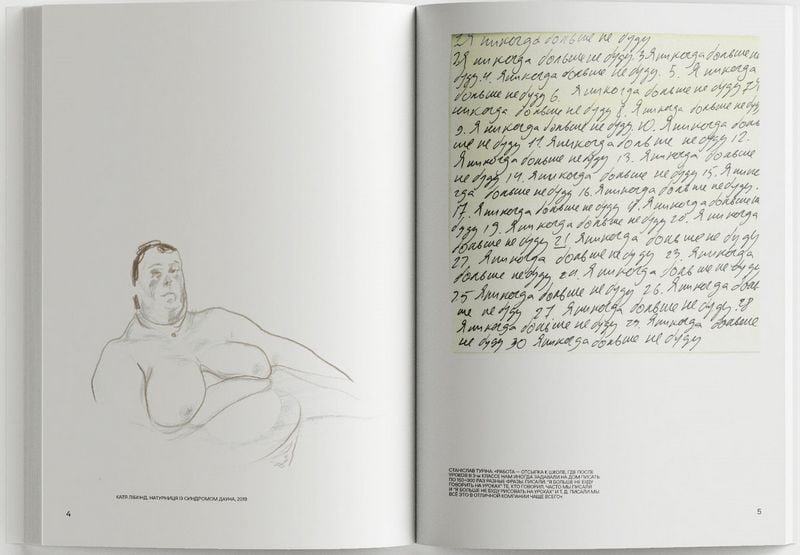 КАТЯ ЛІБКІНД, НАТУРНИЦЯ ІЗ СИНДРОМОМ ДАУНА, 2019
4
Я никогда больше не буду
2Я никогда больше не буду. 3. Я никогда больше не
буду. 4. Я никогда больше не буду. 5. Я никогда
больше не буду 6. Я никогда больше не буду 7. Я
никогда больше не буду 8. Я никогда больше не буду
9. Я никогда больше не буду. 10. Я никогда боль
ше не буду 11. Я никогда больше не буду 12.
Я никогда больше не буду 13. Я никогда больше
не буду 14. Я никогда больше не буду 15. Я нико
гда больше не буду 16. Я никогда больше не буду.
17. Я никогда больше не буду 18. Я никогда больше не
буду 19. Я никогда больше не буду 20. Я никогда
больше не буду 21 Я никогда больше не буду
22. Я никогда больше не буду 23. Я никогда
больше не буду 24. Я никогда больше не буду
25 Я никогда больше не буду 26. Я никогда боль
ше не буду 27. Я никогда больше не буду 28
Я никогда больше не буду 29. Я никогда больше
не буду 30 Я никогда больше не буду
СТАНІСЛАВ ТУРІНА: «РАБОТА — ОТСЫЛКА К ШКОЛЕ, ГДЕ ПОСЛЕ
УРОКОВ В 3-м КЛАССЕ НАМ ИНОГДА ЗАДАВАЛИ НА ДОМ ПИСАТЬ
ПО 150–300 РАЗ РАЗНЫЕ ФРАЗЫ. ПИСАЛИ: "Я БОЛЬШЕ НЕ БУДУ
ГОВОРИТЬ НА УРОКАХ" ТЕ, КТО ГОВОРИЛ. ЧАСТО МЫ ПИСАЛИ
И "Я БОЛЬШЕ НЕ БУДУ РИСОВАТЬ НА УРОКАХ" И Т. Д. ПИСАЛИ МЫ
ВСЁ ЭТО В ОТЛИЧНОЙ КОМПАНИИ ЧАЩЕ ВСЕГО».
5